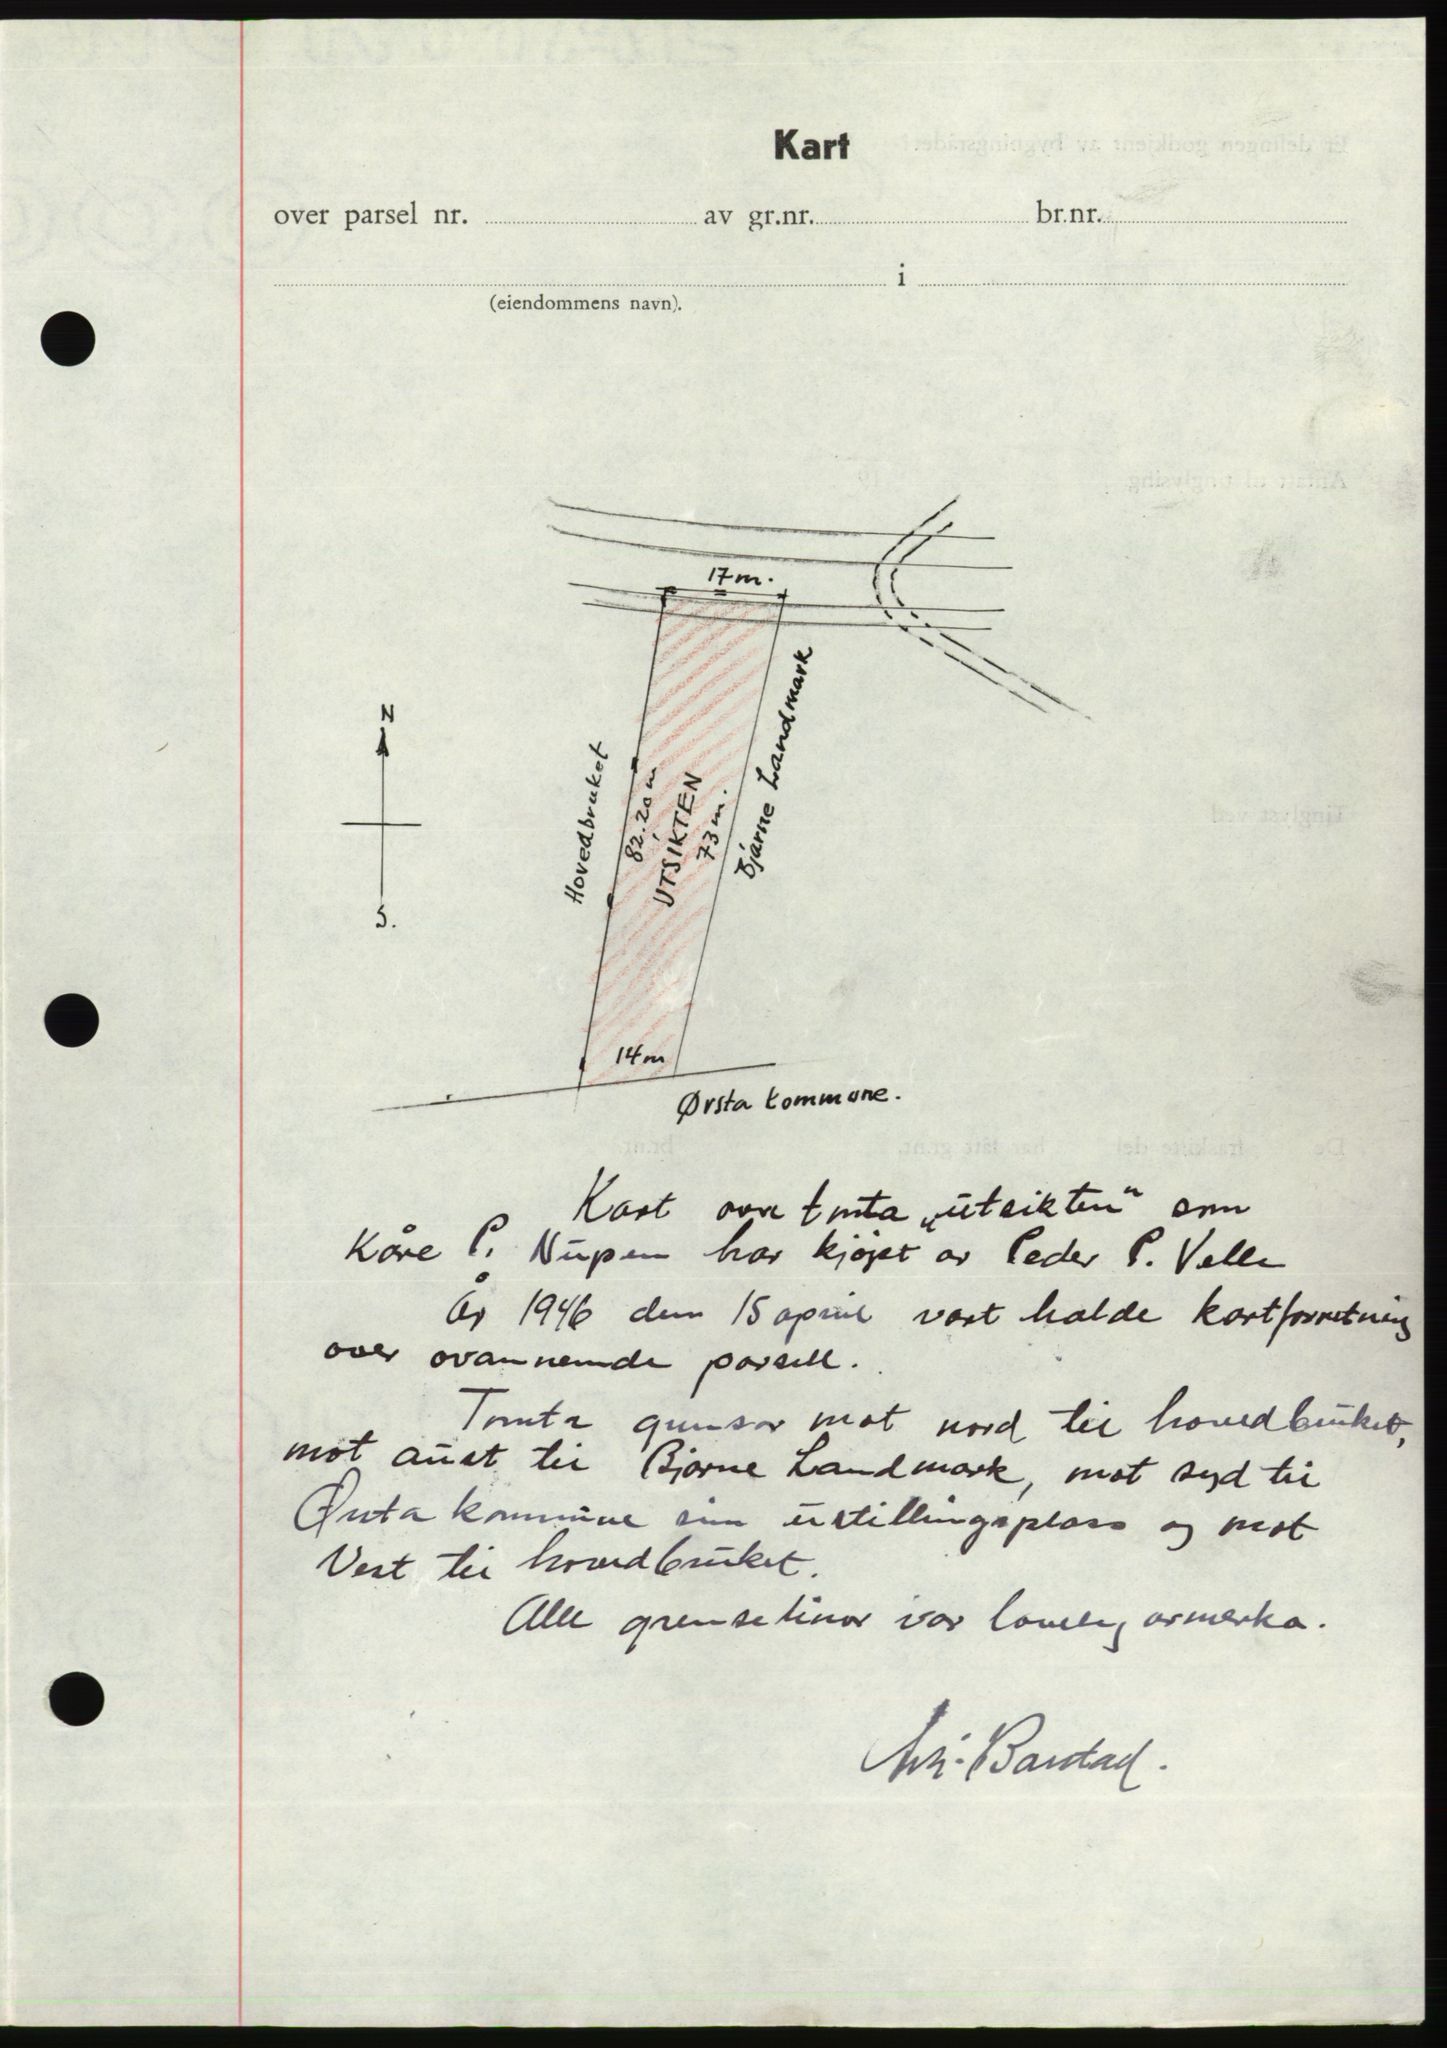 Kart
over parsel nr. av gr.nr. br.nr.
i
(eiendommens navn).
17 m.
N
S.
Hovedbruket
82.20 m
UTSIKTEN
73 m.
Bjarne Landmark
14 m
Ørsta kommune.
Kart over tomta „utsikten" som
Kåre P. Nupen har kjøpt av Peder P. Velle
År 1946 den 15 april vart halde kartforretning
over ovannemde parsell.
Tomta grensar mot nord til hovedbruket,
mot aust til Bjarne Landmark, mot syd til
Ørsta kommune sin utstillingsplass og mot
Vest til hovedbruket.
Alle grenselinor var lovleg avmerka.
Barstad.